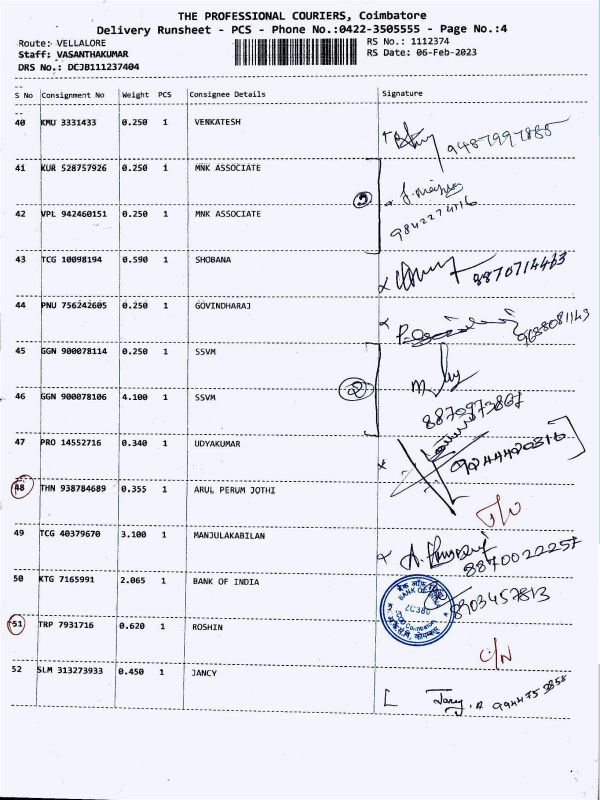 THE PROFESSIONAL COURIERS, Coimbatore
Delivery Runsheet - PCS - Phone No.:0422-3505555 - Page No.:4
Route: VELLALORE
RS No.: 1112374
Staff: VASANTHAKUMAR
RS Date: 06-Feb-2023
DRS No.: DCJB111237404
S No Consignment No Weight PCS Consignee Details Signature
40 KMU 3331433 0.250 1 VENKATESH
9487997885
41 KUR 528757926 0.250 1 MNK ASSOCIATE
42 VPL 942460151 0.250 1 MNK ASSOCIATE
9842274116
43 TCG 10098194 0.590 1 SHOBANA
8870714463
44 PNU 756242605 0.250 1 GOVINDHARAJ
9688081143
45 GGN 900078114 0.250 1 SSVM
46 GGN 900078106 4.100 1 SSVM
2
8870973867
47 PRO 14552716 0.340 1 UDYAKUMAR
48 THN 938784689 0.355 1 ARUL PERUM JOTHI
49 TCG 40379670 3.100 1 MANJULAKABILAN
8870022257
50 KTG 7165991 2.065 1 BANK OF INDIA
8903457813
BANK OF
51 TRP 7931716 0.620 1 ROSHIN
C/N
52 SLM 313273933 0.450 1 JANCY
Jancy . R 9944753858